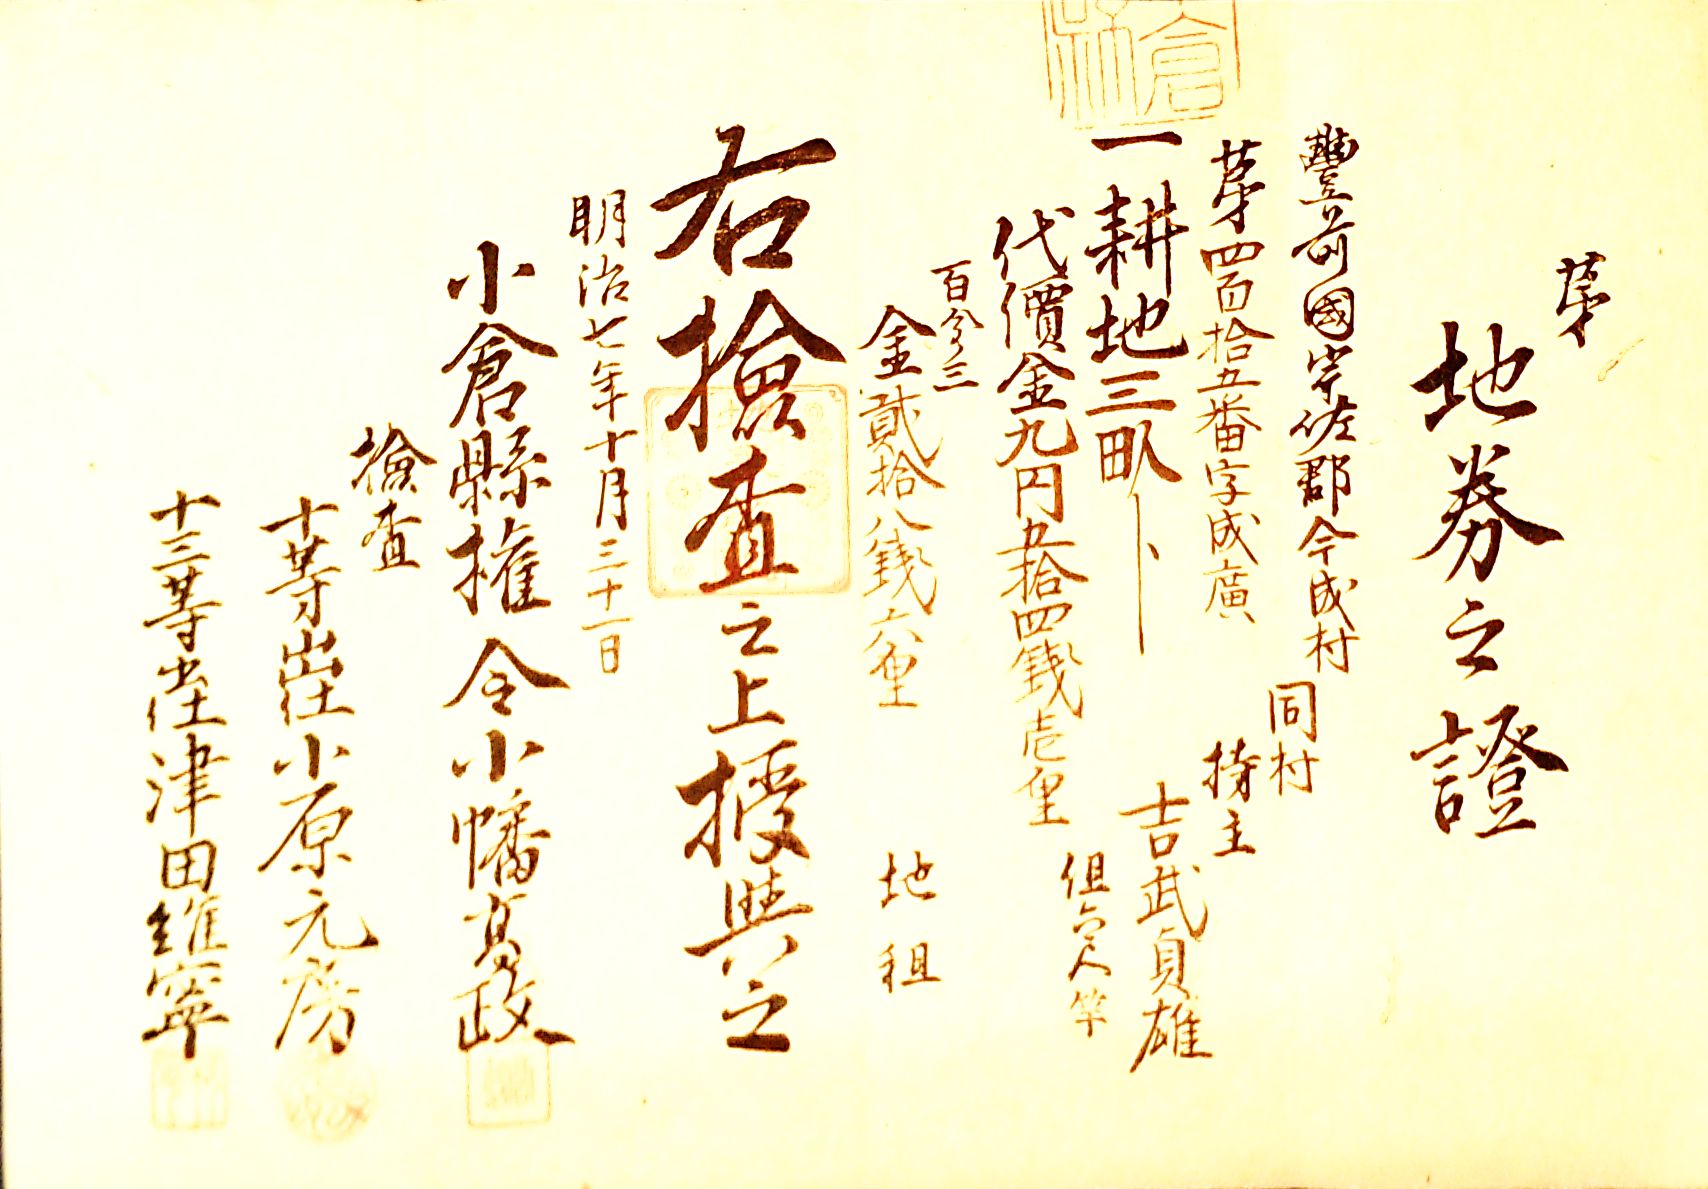 第
地券之證
豐前國宇佐郡今成村
同村
第四百拾五番字成廣
持主
吉武貞雄
一耕地三畝卜
代價金九円五拾四錢壱厘
百分三
金貳拾八錢六厘
地租
右撿査之上授與之
明治七年十月三十一日
小倉縣權令小幡高政
撿査
十等出仕小原元房
十三等出仕津田維寧